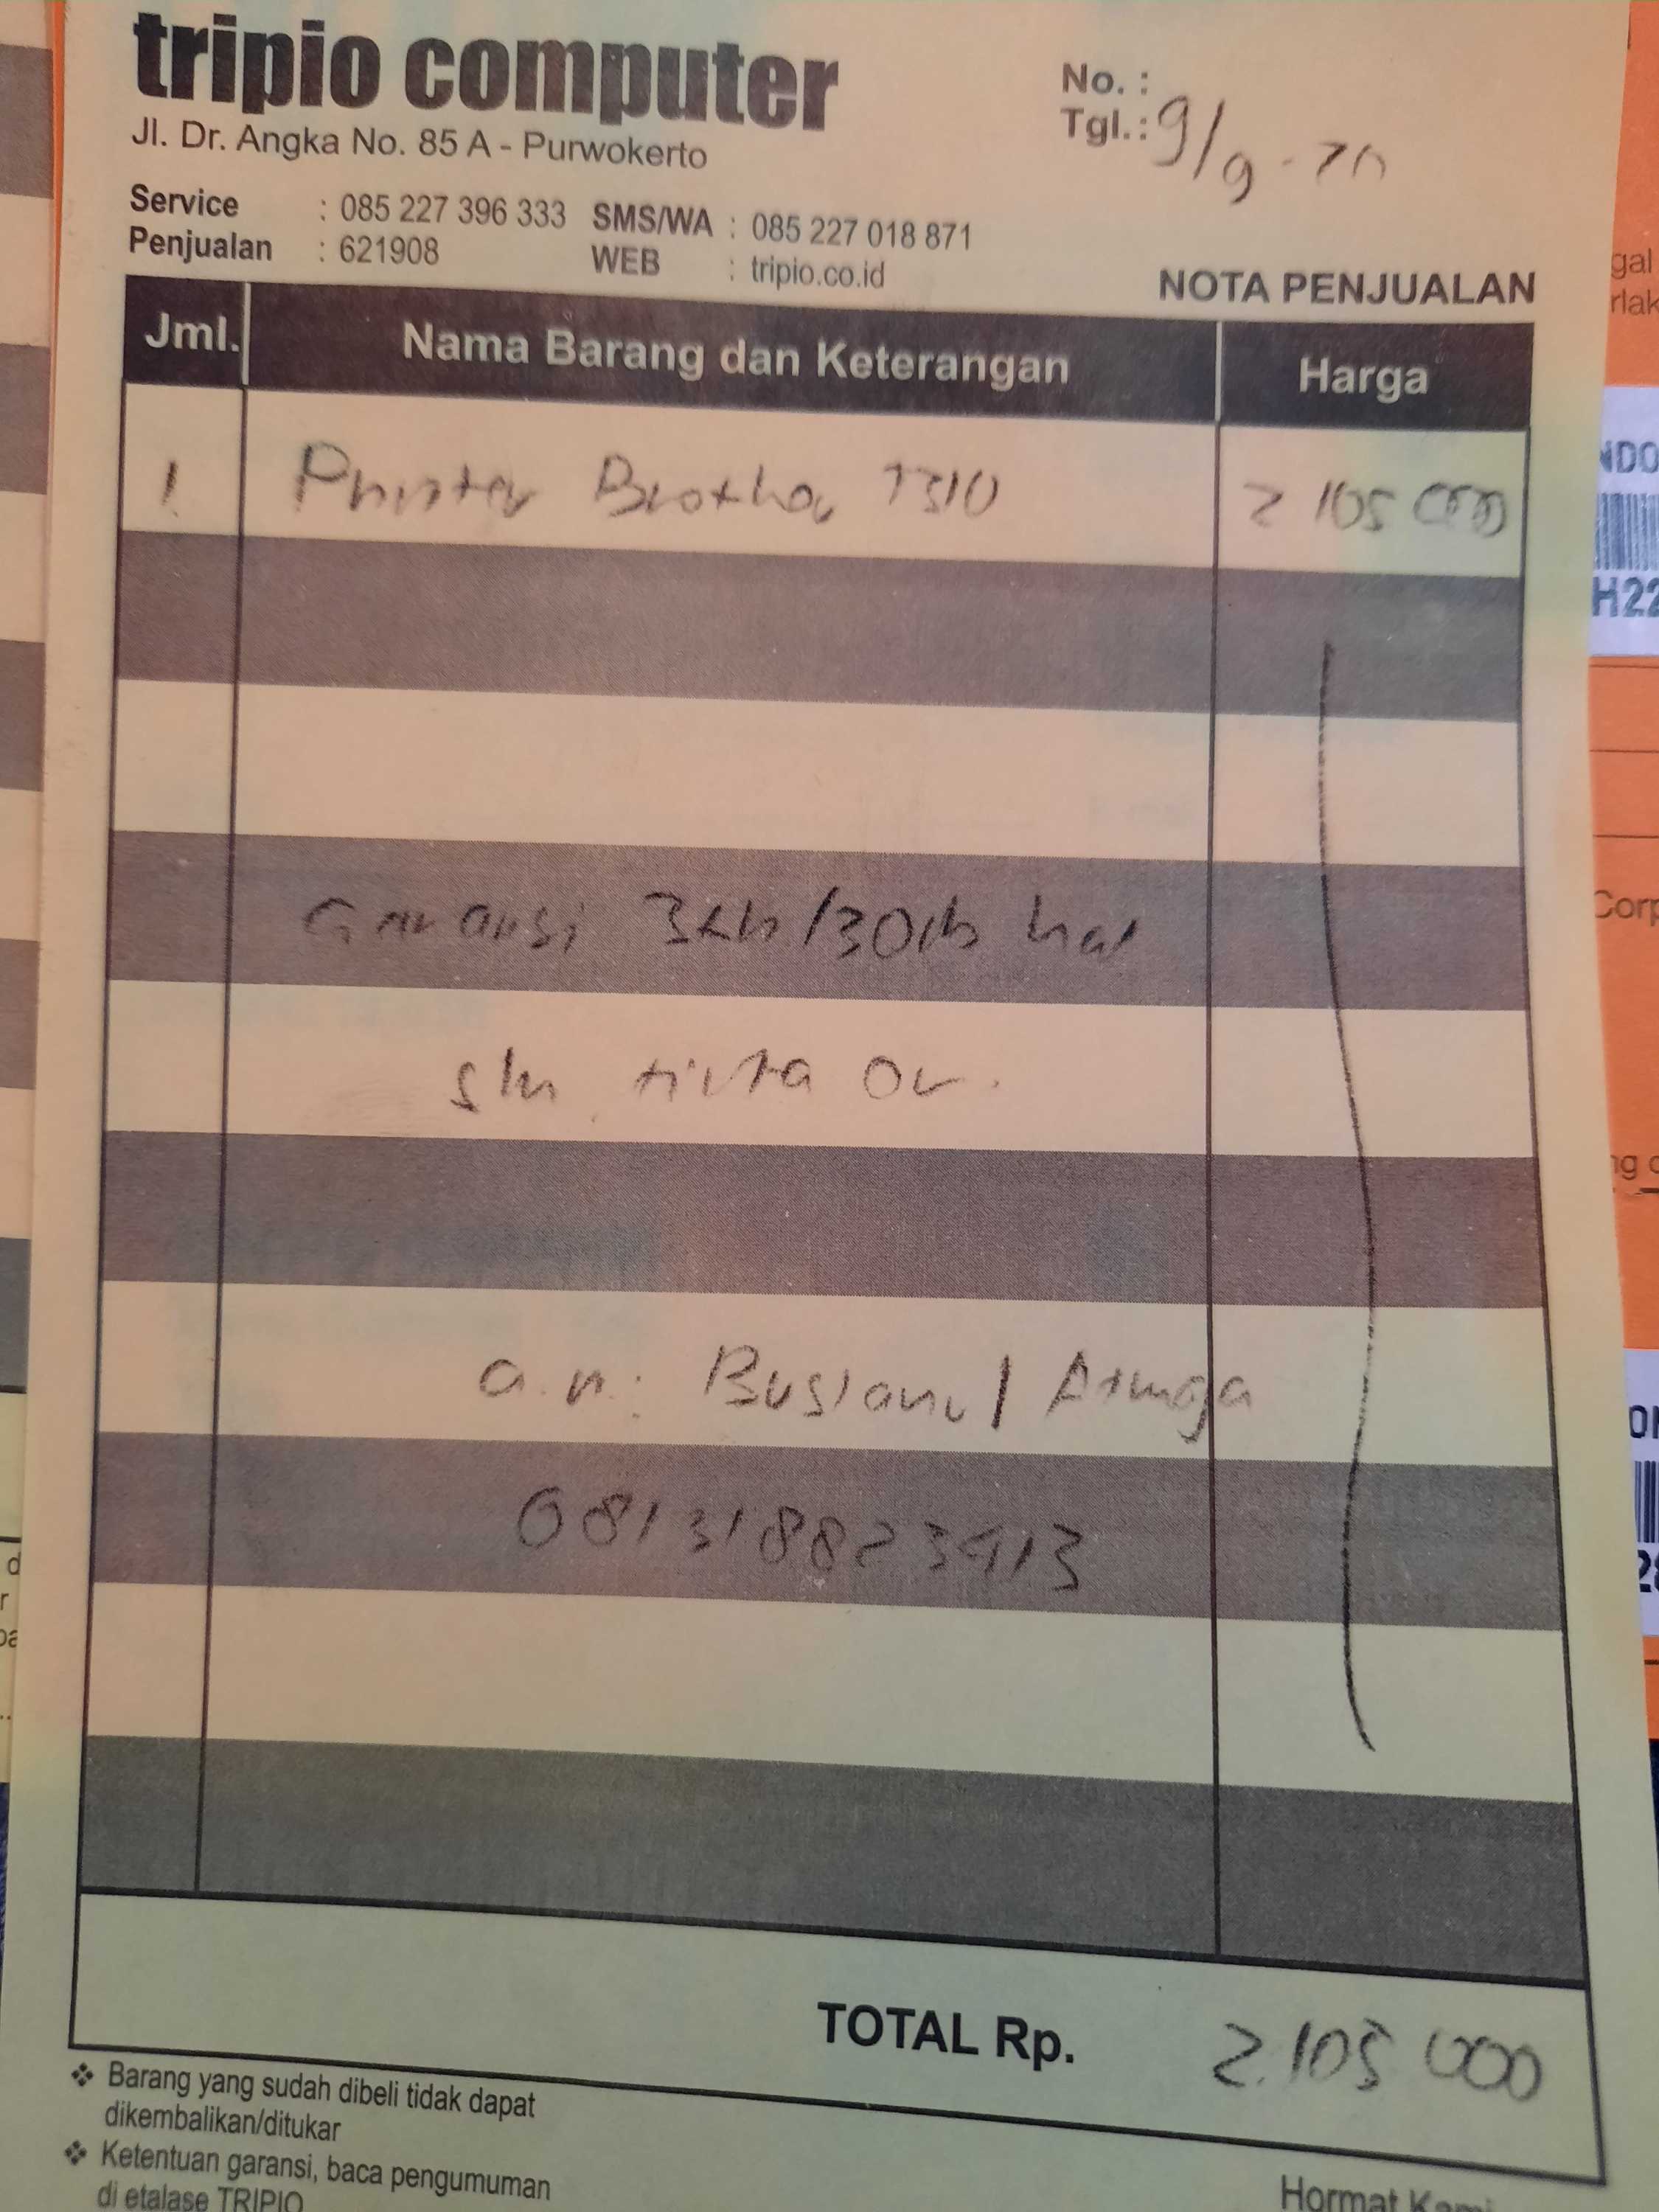 tripio computer
Jl. Dr. Angka No. 85 A - Purwokerto
No. :
Tgl.: 9/9-20
Service : 085 227 396 333 SMS/WA : 085 227 018 871
Penjualan : 621908 WEB : tripio.co.id
NOTA PENJUALAN
Jml. Nama Barang dan Keterangan Harga
1. Printer Brother T310 2 105 000
Garansi 3th/30rb hal
slm tinta or.
a.n: Buslanul Atmaga
081318823413
TOTAL Rp. 2.105 000
❖ Barang yang sudah dibeli tidak dapat
dikembalikan/ditukar
❖ Ketentuan garansi, baca pengumuman
di etalase TRIPIO
Hormat Kami
gal
rlak
NDO
H22
Corp